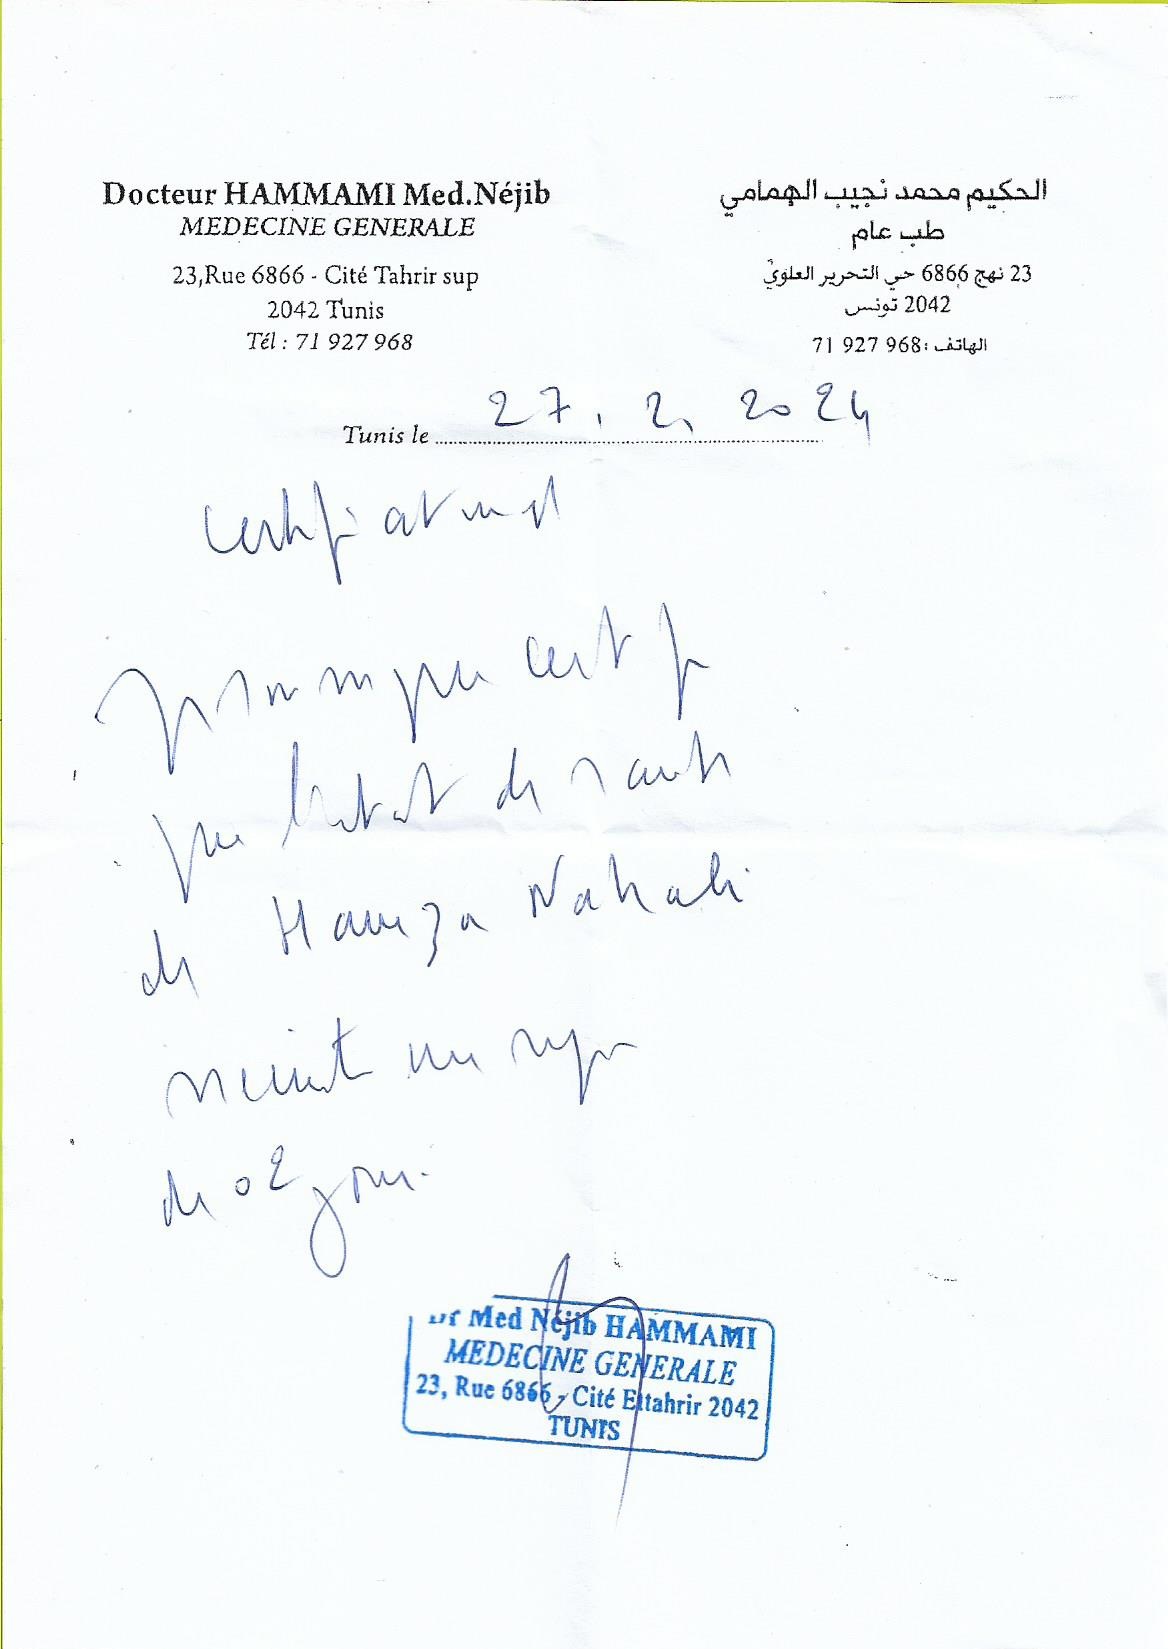 Docteur HAMMAMI Med.Néjib
MEDECINE GENERALE
23,Rue 6866 - Cité Tahrir sup
2042 Tunis
Tél : 71 927 968
الحكيم محمد نجيب الهمامي
طب عام
23 نهج 6866 حي التحرير العلوي
2042 تونس
الهاتف :968 927 71
Tunis le 27.2.2024
certificat
certifie
que l'état de santé
de Hamza Nahali
nécessite un repos
de 02 jours.
Dr Med Néjib HAMMAMI
MEDECINE GENERALE
23, Rue 6866 - Cité Ettahrir 2042
TUNIS